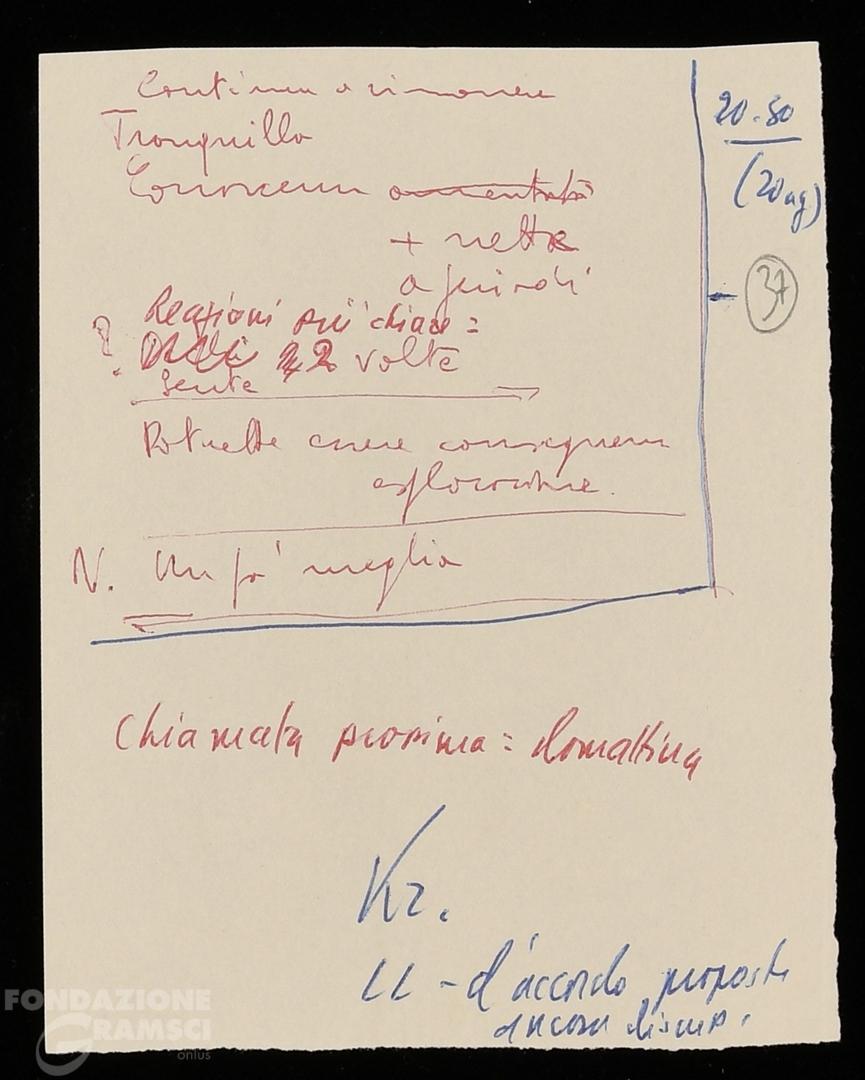 Continua a rimanere
Tranquillo
Conoscenza aumentata
+ netta
a periodi
? Reazioni più chiare =
2 volte
sente
Potrebbe essere conseguenza
esplorazione.
N. Un po' meglio
20.30
(20 ag)
37
Chiamata prossima = domattina
Kr.
LL - d'accordo proposte
ancora discus.
FONDAZIONE
GRAMSCI
onlus